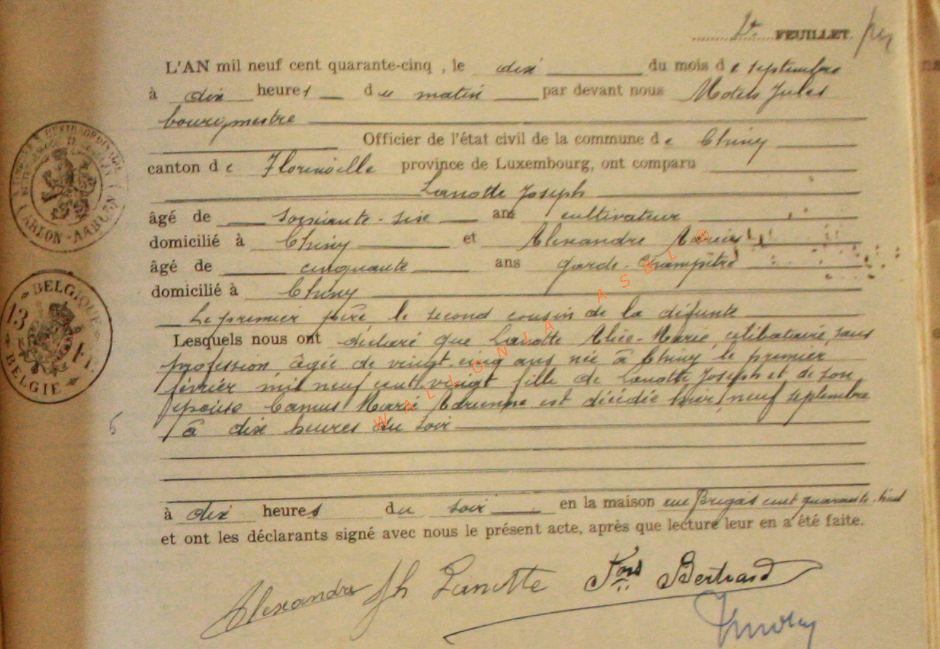 2e FEUILLET
L'AN mil neuf cent quarante-cinq, le dix du mois de septembre
à dix heures du matin par devant nous Jules
bourgmestre
Officier de l'état civil de la commune de Chiny
canton de Florenville province de Luxembourg, ont comparu
Lanotte Joseph
âgé de soixante-six ans cultivateur
domicilié à Chiny et Alexandre
âgé de cinquante ans garde-champêtre
domicilié à Chiny
Le premier père le second cousin de la défunte
Lesquels nous ont déclaré que Lanotte Alice-Marie, célibataire, sans
profession âgée de vingt-cinq ans née à Chiny le premier
février mil neuf cent vingt fille de Lanotte Joseph et de son
épouse Camus Marie est décédée hier, neuf septembre
à dix heures du soir
à dix heures du soir en la maison rue cent quarante
et ont les déclarants signé avec nous le présent acte, après que lecture leur en a été faite.
Alexandre Jh Lanotte Fois Bertrand
ARLON-AARLEN
BELGIQUE
BELGIË
WALLONIA ASBL